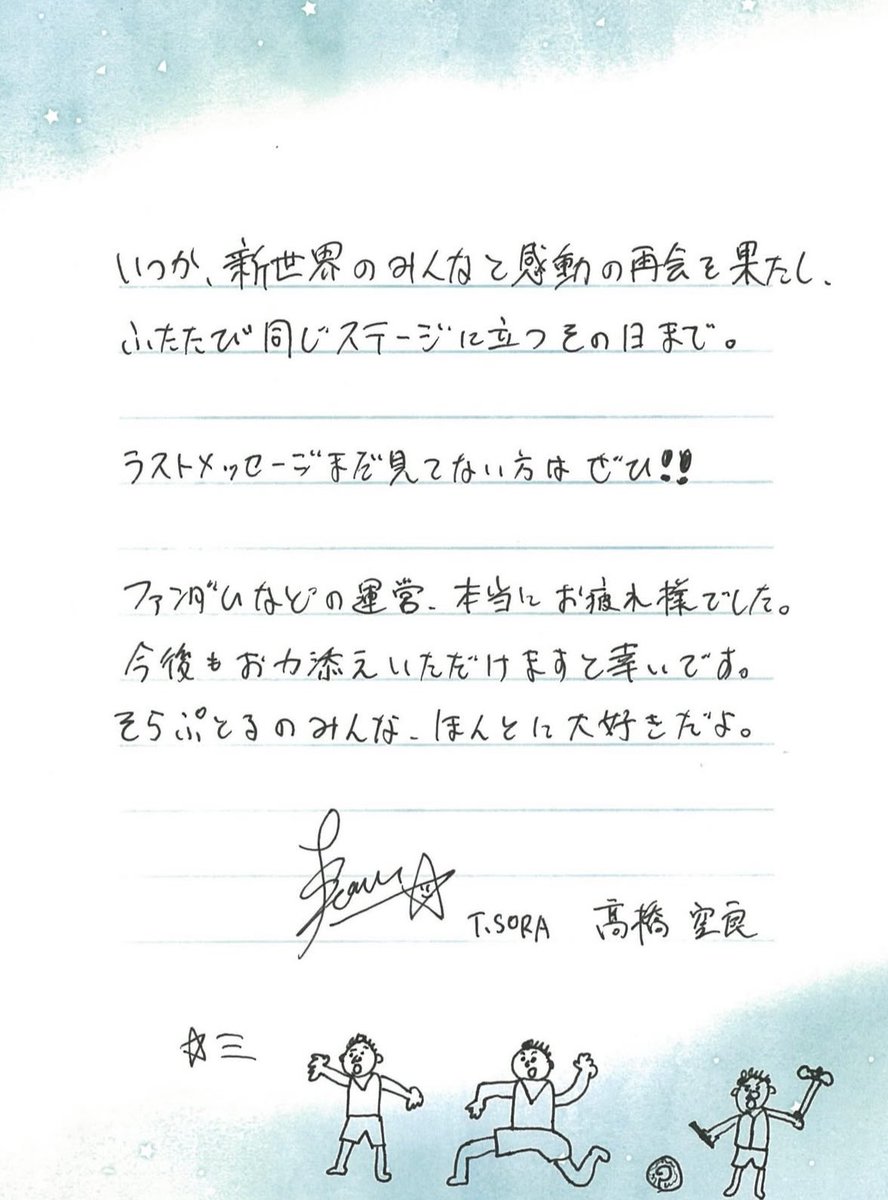 いつか、新世界のみんなと感動の再会を果たし、
ふたたび同じステージに立つその日まで。
ラストメッセージまだ見てない方はぜひ!!
ファンダムなどの運営、本当にお疲れ様でした。
今後もお力添えいただけますと幸いです。
そらぷとるのみんな、ほんとに大好きだよ。
T.SORA 髙橋 空良